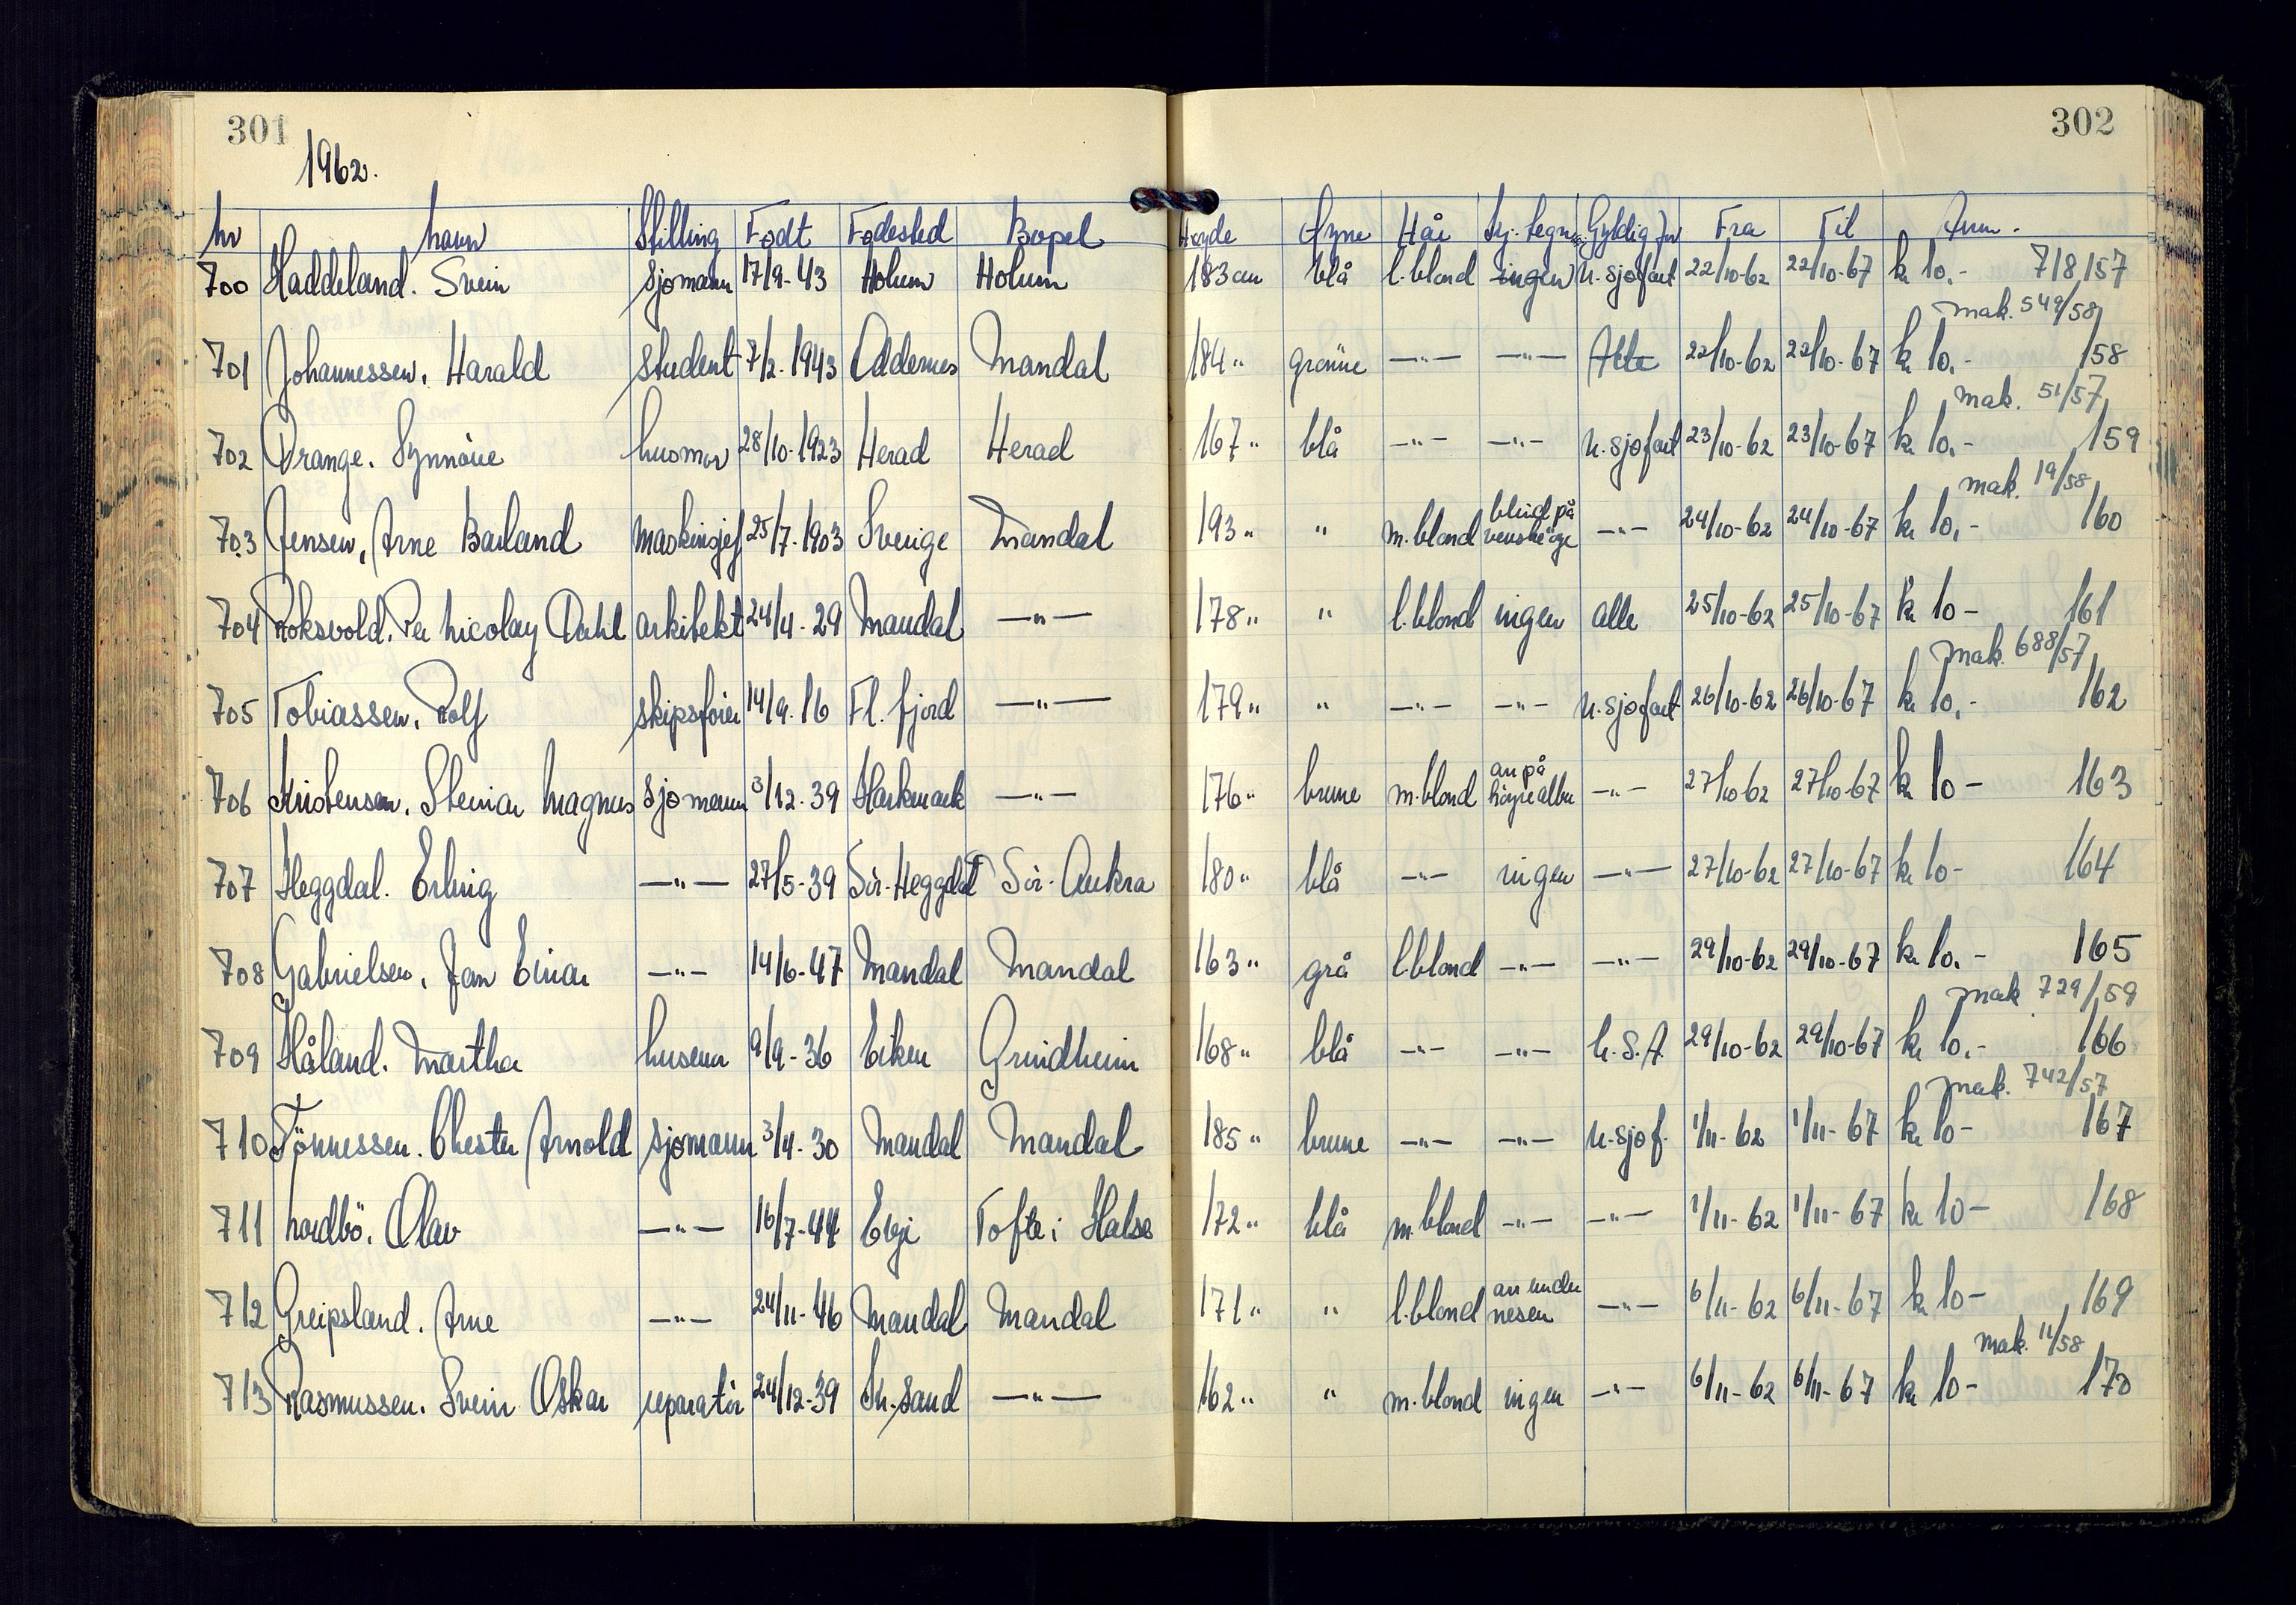 301
302
1962.
Nr Navn Stilling Født Fødested Bopel Høyde Øyne Hår Sij. tegn Gyldig for Fra Til Anm.
700 Haddeland. Svein sjømann 17/9-43 Holum Holum 183 cm blå l.blond ingen u.sjøfart 22/10-62 22/10-67 kr 10.- 718157
mak. 549/58
701 Johannessen, Harald student 7/2.1943 Oddernes Mandal 184 " grønne —"— —"— Alle 22/10-62 22/10-67 kr 10.- 158
mak. 51/57
702 Drange. Synnöve husmor 28/10.1923 Herad Herad 167 " blå —"— —"— u.sjøfart 23/10-62 23/10-67 kr 10.- 159
mak. 19/58
703 Jensen, Arne Barland maskinsjef 25/7.1903 Sverige Mandal 193 " " m.blond blind på venstre öye —"— 24/10-62 24/10-67 kr 10.- 160
704 Roksvold. Per Nicolay Dahl arkitekt 24/4-29 Mandal —"— 178 " " l.blond ingen alle 25/10-62 25/10-67 kr 10- 161
mak. 688/57
705 Tobiassen. Rolf skipsfører 14/9.16 Fl. fjord —"— 179 " " —"— —"— u.sjøfart 26/10-62 26/10-67 kr 10.- 162
706 Kristensen. Steinar Magnus sjømann 3/12-39 Harkmark —"— 176 " brune m.blond arr på høyre albu —"— 27/10-62 27/10-67 kr 10- 163
707 Heggdal. Erling —"— 27/5-39 Sör-Heggdal Sör-Aukra 180 " blå —"— ingen —"— 27/10-62 27/10-67 kr 10- 164
708 Gabrielsen, Jan Einar —"— 14/6-47 Mandal Mandal 163 " grå l.blond —"— —"— 29/10-62 29/10-67 kr 10.- 165
mak 729/59
709 Håland. Martha 9/9-36 Eiken Grindheim 168 " blå —"— —"— U.S.A. 29/10-62 29/10-67 kr 10.- 166
mak. 742/57
710 Tönnessen. Chester Arnold sjømann 3/4-30 Mandal Mandal 185 " brune —"— —"— u.sjøf. 1/11-62 1/11-67 kr 10- 167
711 Nordbö. Olav —"— 16/7-44 Evje Tofte i Halse 172 " blå m.blond —"— —"— 1/11-62 1/11-67 kr 10- 168
712 Greipsland. Arne —"— 24/11-46 Mandal Mandal 171 " " l.blond arr under nesen —"— 6/11-62 6/11-67 kr 10- 169
mak. 11/58
713 Rasmussen. Svein Oskar reparatör 24/12-39 Kr.sand —"— 162 " " m.blond ingen —"— 6/11-62 6/11-67 kr 10- 170